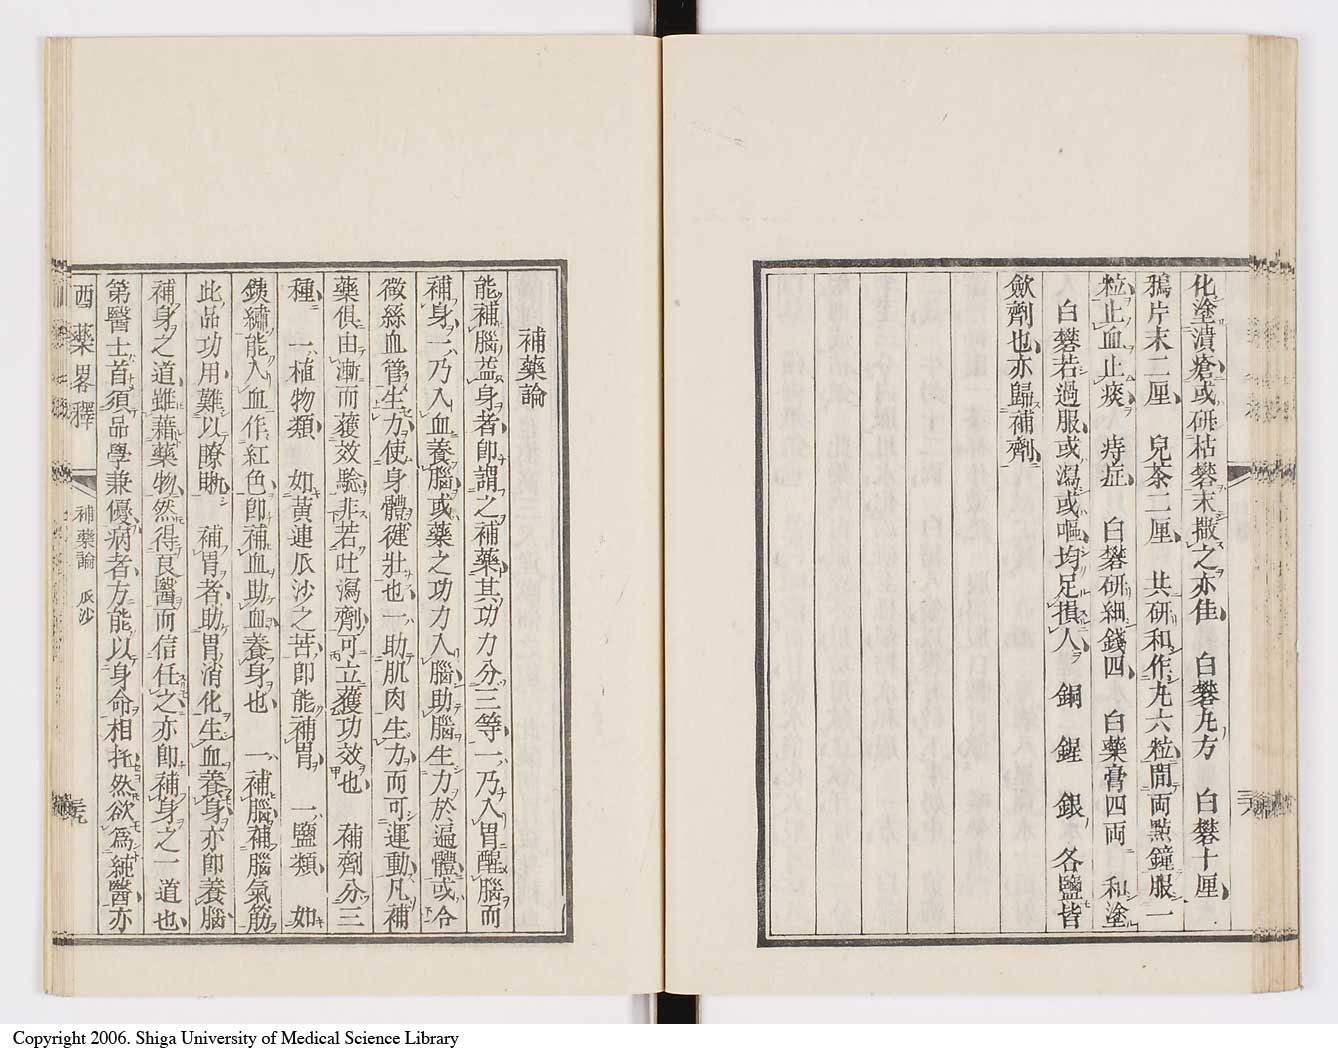 化塗潰瘡或研枯礬末撒之亦佳　白礬丸方　白礬十厘
鴉片末二厘　兒茶二厘　共研和作丸六粒間両點鐘服一
粒止血止痰　痔症　白礬研細錢四　白藥膏四両　和塗
白礬若過服或瀉或嘔均足損人　銅　鋅　銀　各鹽皆
歛劑也亦歸補劑
補藥論
能補腦益身者卽謂之補藥其功力分三等一乃入胃醒腦而
補身一乃入血養腦或藥之功力入腦助腦生力於遍體或令
微絲血管生力使身體健壯也一助肌肉生力而可運動凡補
藥俱由漸而獲效驗非若吐瀉劑可立獲功效也　補劑分三
種　一植物類　如黃連瓜沙之苦卽能補胃　一鹽類　如
鐵繡能入血作紅色卽補血助血養身也　一補腦補腦氣筋
此品功用難以瞭助　補胃者助胃消化生血養身亦卽養腦
補身之道雖藉藥物然得良醫而信任之亦卽補身之一道也
第醫士首須品學兼優病者方能以身命相托然欲爲純醫亦
西藥畧釋
補藥論　瓜沙
三九
Copyright 2006. Shiga University of Medical Science Library